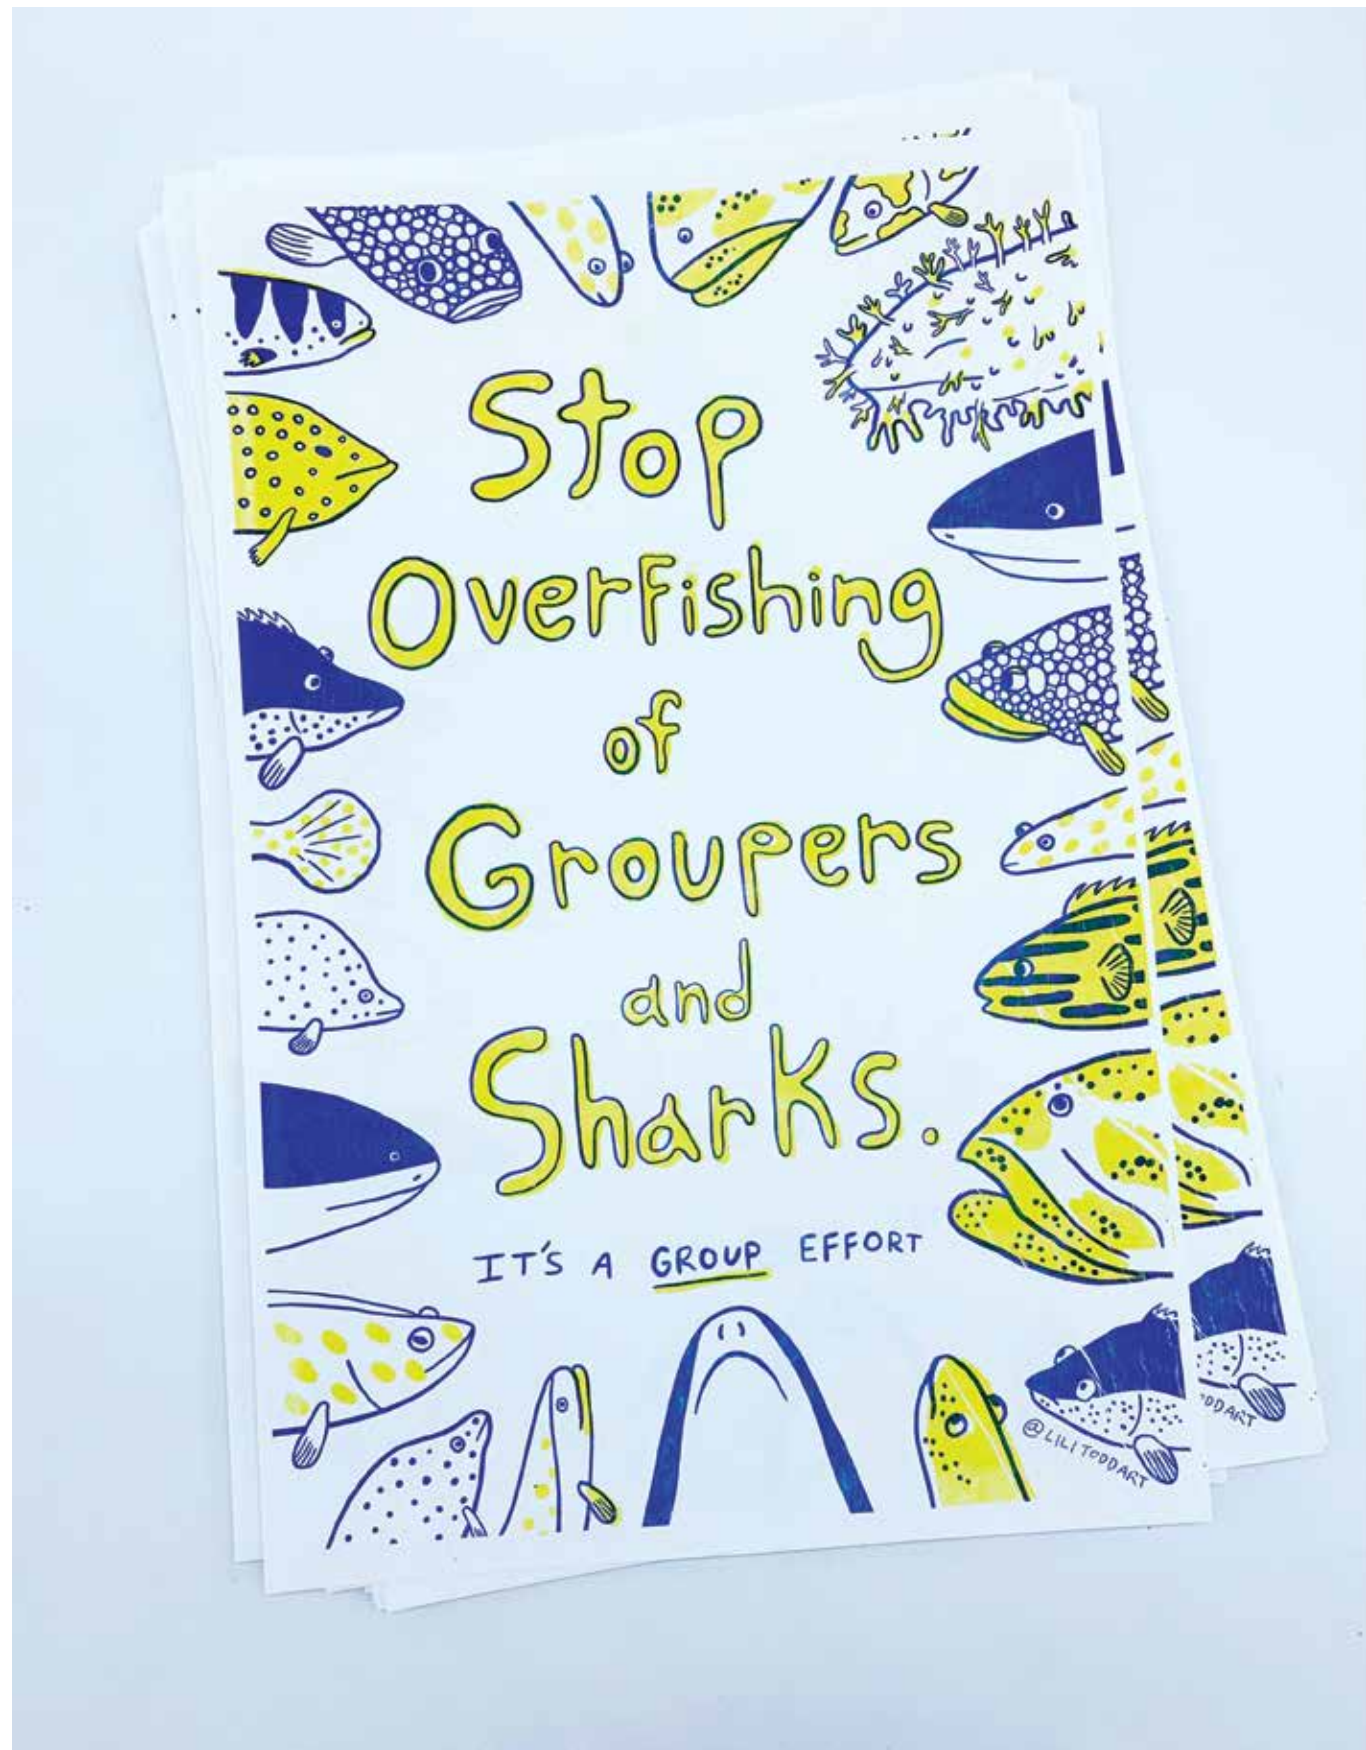 Stop
Overfishing
of
Groupers
and
Sharks.
IT'S A GROUP EFFORT
@LILITODDART
ODDART